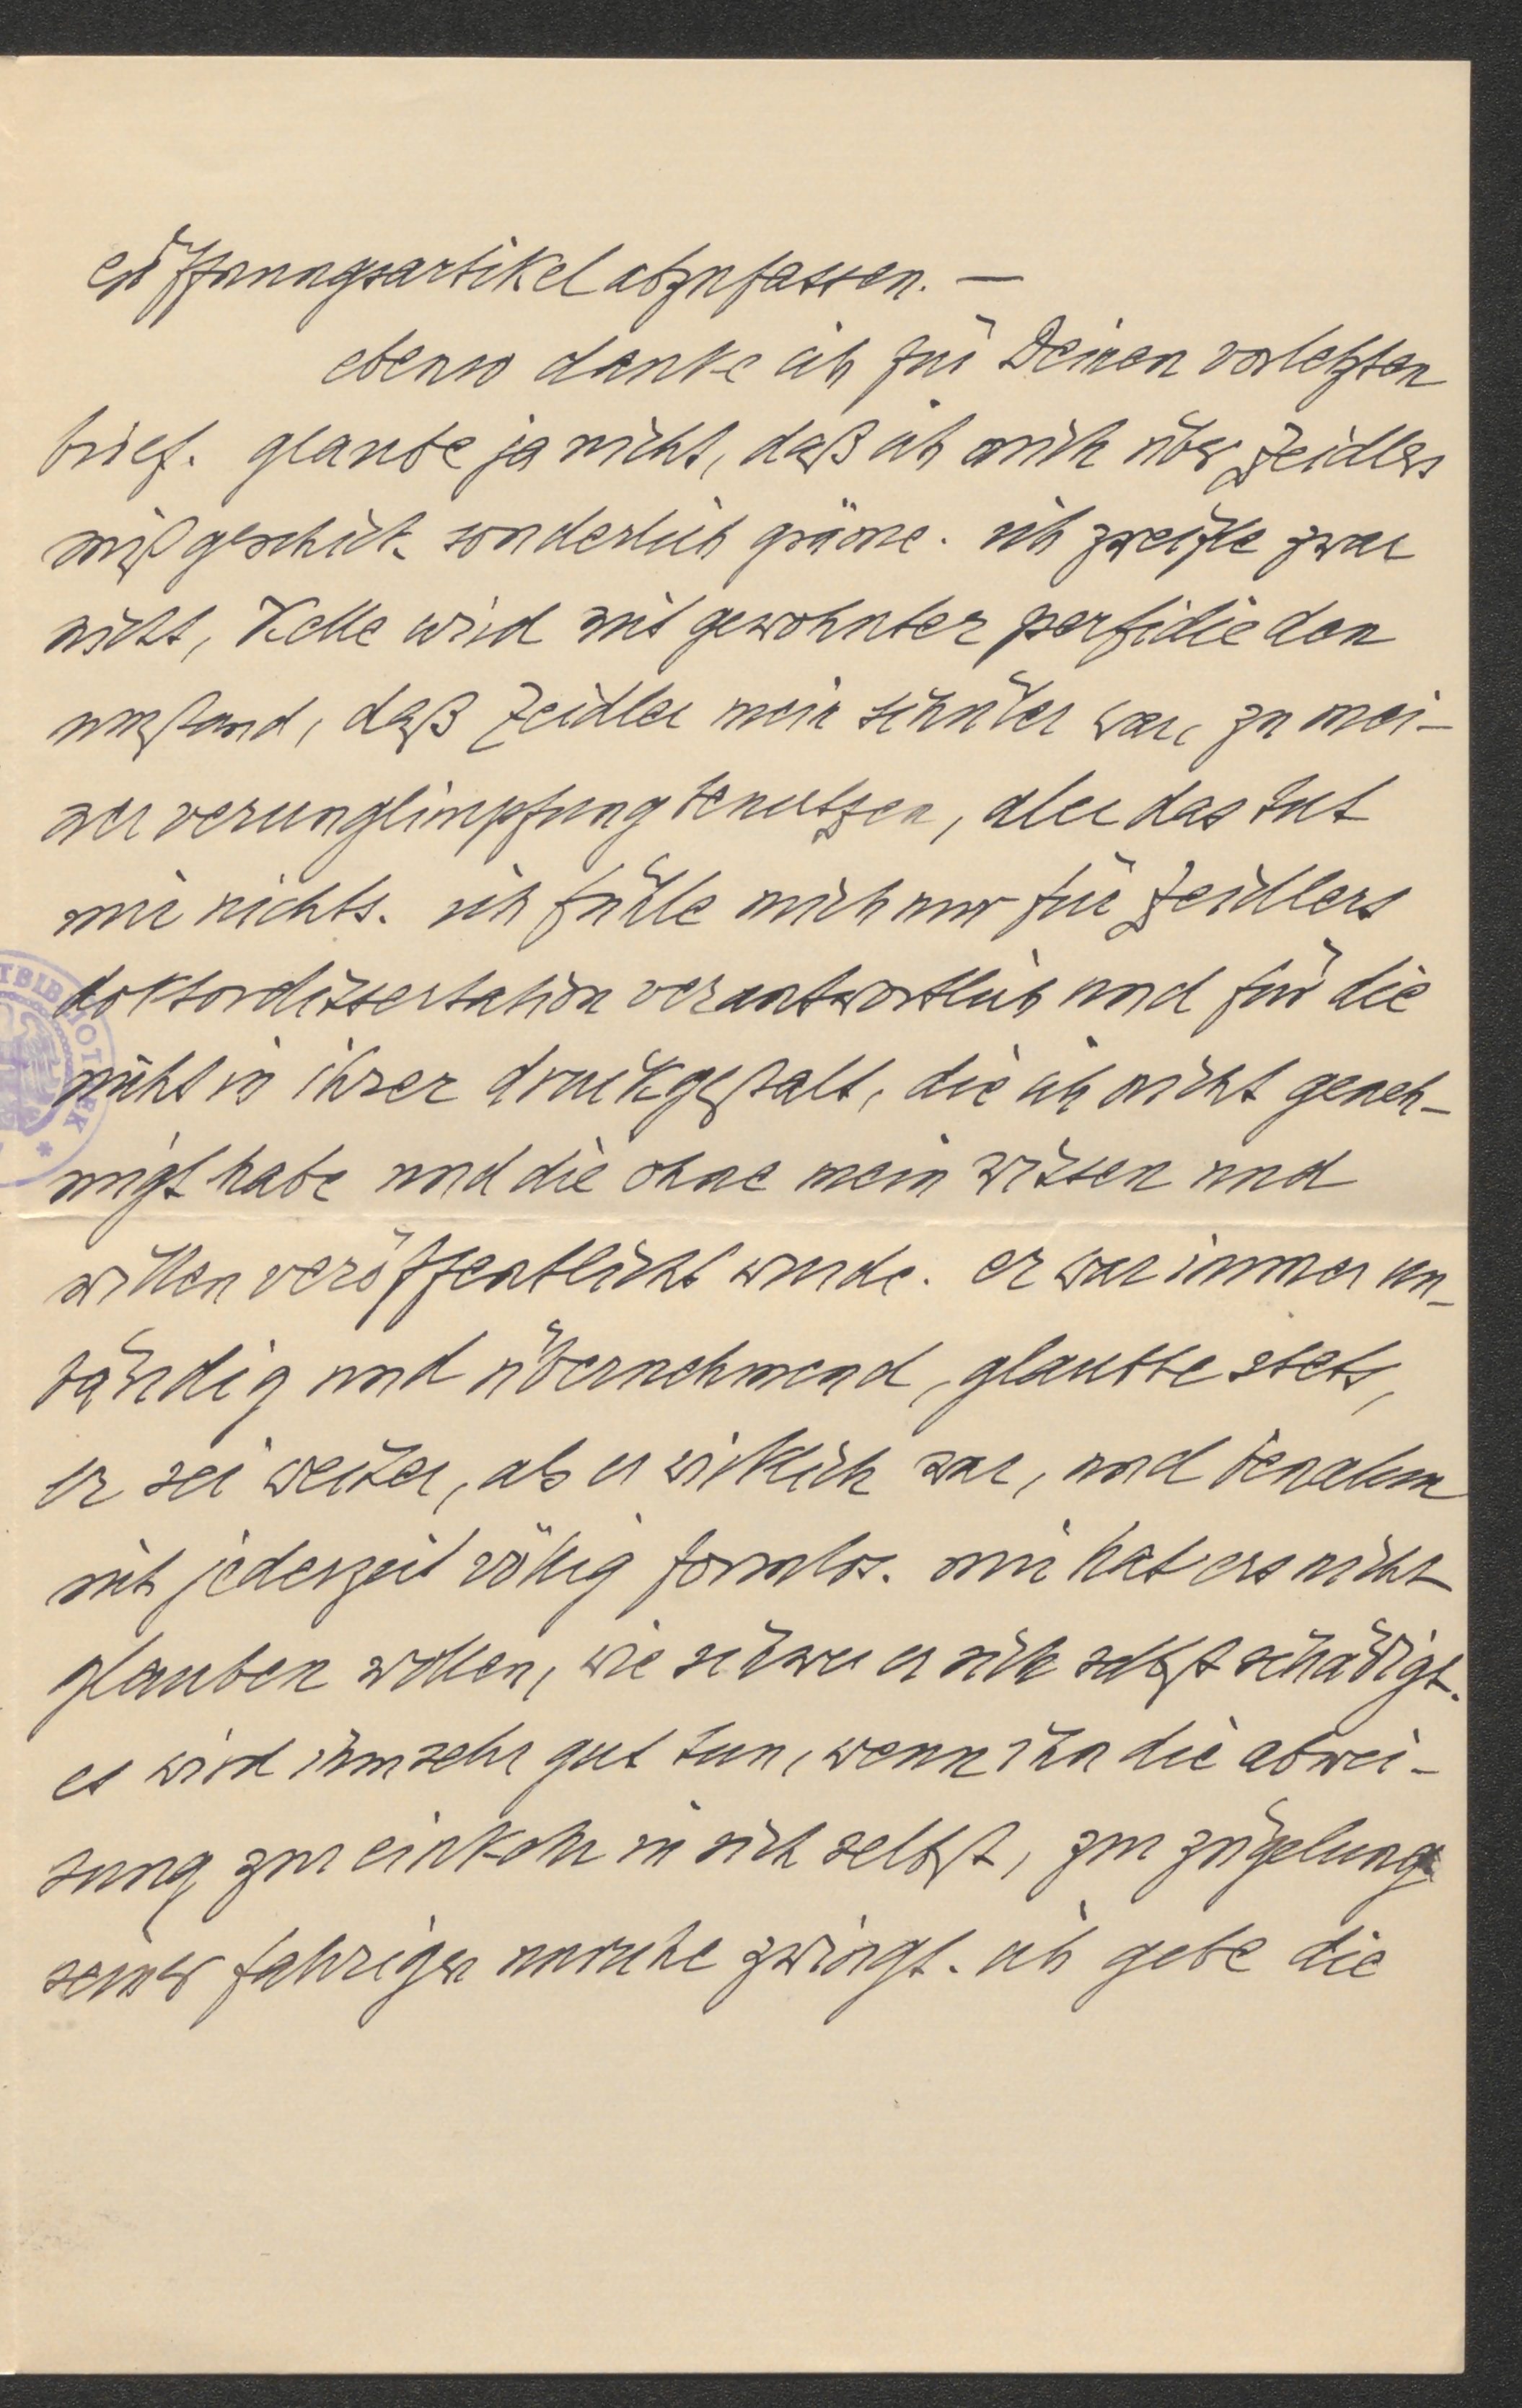 eröffnungsartikel abzufassen. —
ebenso danke ich für Deinen vorletzten
brief. glaube ja nicht, daß ich mich über Zeidlers
mißgeschick sonderlich gräme. ich zweifle zwar
nicht, Kelle wird mit gewohnter perfidie den
umstand, daß Zeidler mein schüler war, zu mei-
ner verunglimpfung benutzen, aber das tut
mir nichts. ich fühle mich nur für Zeidlers
doktordissertation verantwortlich und für die
nicht in ihrer druckgestalt, die ich nicht geneh-
migt habe und die ohne mein wissen und
willen veröffentlicht wurde. er war immer un-
bändig und übernehmend, glaubte stets,
er sei weiter, als er wirklich war, und benahm
sich jederzeit völlig formlos. mir hat ers nicht
glauben wollen, wie schwer er sich selbst schädigt.
es wird ihm sehr gut tun, wenn ihn die abwei-
sung zur einkehr in sich selbst, zur zügelung
seiner fahrigen unruhe zwingt. ich gebe die
TBIBLIOTHEK